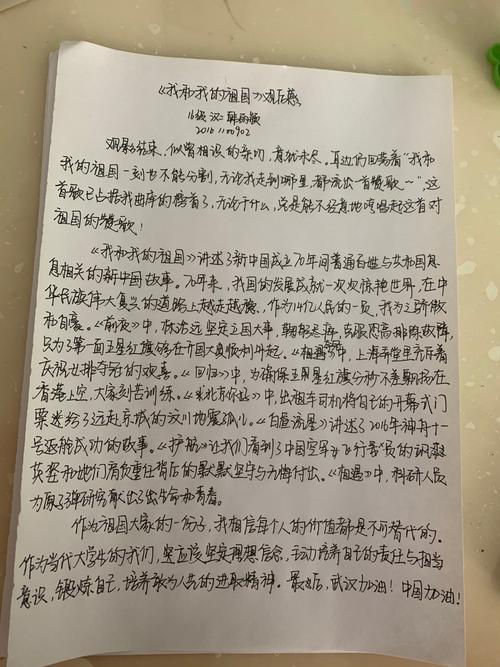 《我和我的祖国》观后感
16级 汉二
观影结束，似曾相识的亲切，意犹未尽。耳边仍回荡着“我和
我的祖国一刻也不能分割，无论我走到哪里，都流出一首赞歌～”，这
首歌已占据我曲库的榜首了，无论干什么，总是能不经意地哼唱起这首对
祖国的赞歌！
《我和我的祖国》讲述了新中国成立70年间普通百姓与共和国息
息相关的新中国故事。70年来，我国的发展成就一次次惊艳世界，在中
华民族伟大复兴的道路上越走越稳，作为14亿人民的一员，我为之骄傲
和自豪。《前夜》中，林治远坚定立国大事，克服恐高排除故障，
只为了第一面五星红旗能够在开国大典顺利升起。《相遇》中，上海弄堂里充斥着
庆祝女排夺冠的欢喜。《回归》中，为确保五星红旗分秒不差飘扬在
香港上空，大家刻苦训练。《北京你好》中，出租车司机将自己的开幕式门
票送给了远赴京城的汶川地震孤儿。《白昼流星》讲述了2016年神舟十一
号返航成功的故事。《护航》让我们看到了中国空军女飞行员的飒爽
英姿和她们肩负重任背后的默默坚守与无悔付出。《相遇》中，科研人员
为原子弹研究献出了生命和青春。
作为祖国大家的一份子，我相信每个人的价值都是不可替代的。
作为当代大学生的我们，更应该坚定理想信念，主动培养自己的责任与担当
意识，锻炼自己，培养敢为人先的进取精神。最后，武汉加油！中国加油！